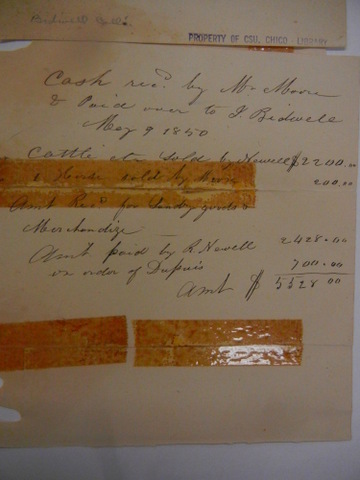 Bidwell Coll.
PROPERTY OF CSU, CHICO LIBRARY
Cash rec.d by Mr Moore
& Paid over to J. Bidwell
May 9 1850
Cattle etc sold by Newell $2200.00
1 Horse sold by Moore 200.00
Amt Rec.d for Sundry goods &
Merchandize 2428.00
Amt paid by R Newell
on order of Dupuis 700.00
Amt $ 5528.00